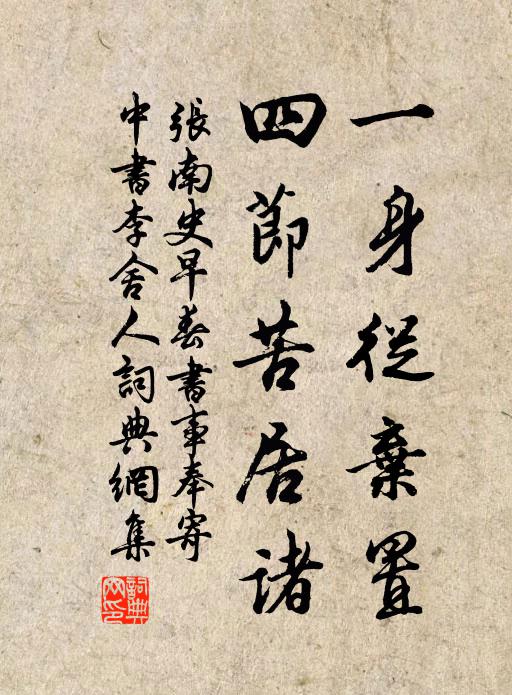 一身從棄置
四節苦居諸
張南史早春書事奉寄
中書李舍人詞典網集
詞典
网印